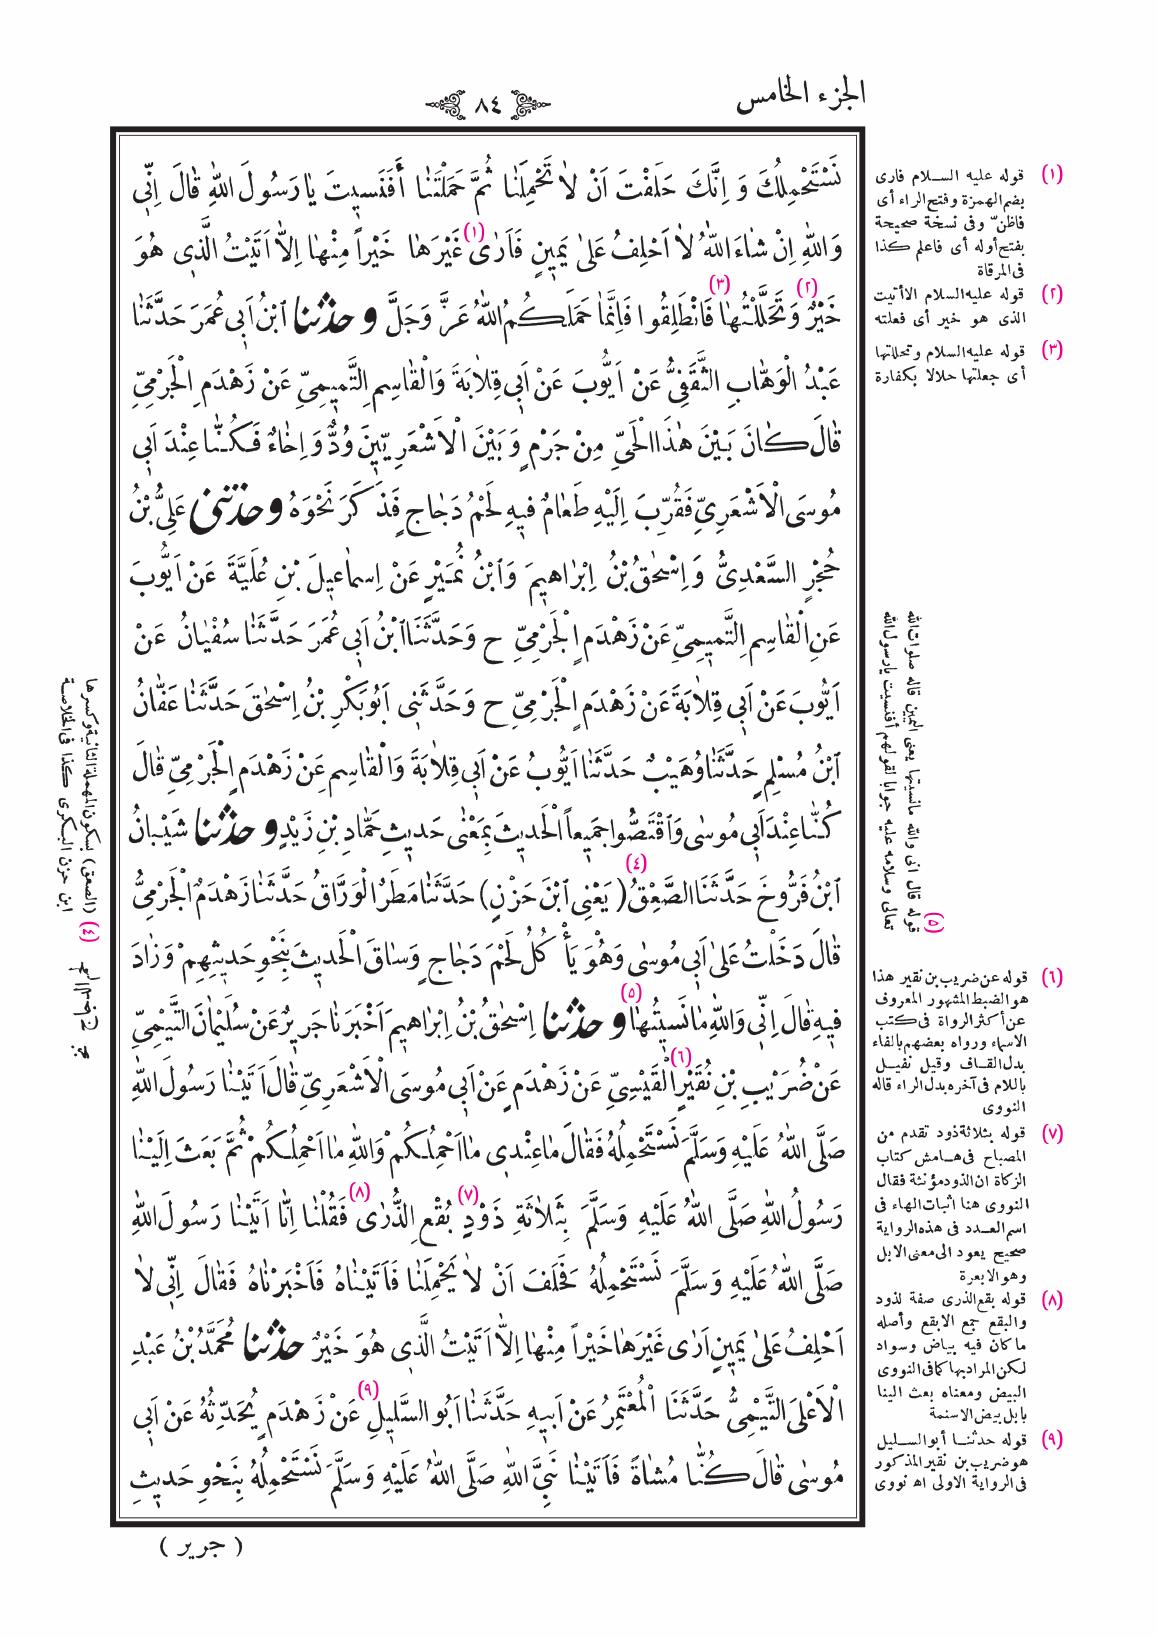 الجزء الخامس
٨٤
نَسْتَحْمِلُكَ وَ اِنَّكَ حَلَفْتَ اَنْ لاٰ تَحْمِلَنٰا ثُمَّ حَمَلْتَنٰا أَفَنَسيتَ يٰا رَسُولَ اللّٰهِ قٰالَ اِنّى
وَاللّٰهِ اِنْ شٰاءَ اللّٰهُ لاٰ اَحْلِفُ عَلىٰ يَمينٍ فَاَرىٰ (١) غَيْرَهٰا خَيْراً مِنْهٰا اِلاّٰ اَتَيْتُ الَّذى هُوَ
خَيْرٌ (٢) وَتَحَلَّلْتُهٰا (٣) فَانْطَلِقُوا فَاِنَّمٰا حَمَلَكُمُ اللّٰهُ عَزَّ وَجَلَّ و حدثنا ابْنُ اَبى عُمَرَ حَدَّثَنٰا
عَبْدُ الْوَهّٰابِ الثَّقَفِىُّ عَنْ اَيُّوبَ عَنْ اَبى قِلاٰبَةَ وَالْقٰاسِمِ التَّميمِىِّ عَنْ زَهْدَمٍ الْجَرْمِىِّ
قٰالَ كٰانَ بَيْنَ هٰذَا الْحَىِّ مِنْ جَرْمٍ وَ بَيْنَ الْاَشْعَرِيّينَ وُدٌّ وَ اِخٰاءٌ فَكُنّٰا عِنْدَ اَبى
مُوسَى الْاَشْعَرِىِّ فَقُرِّبَ اِلَيْهِ طَعٰامٌ فيهِ لَحْمُ دَجٰاجٍ فَذَكَرَ نَحْوَهُ و حدثنى عَلِىُّ بْنُ
حُجْرٍ السَّعْدِىُّ وَ اِسْحٰقُ بْنُ اِبْرٰاهيمَ وَابْنُ نُمَيْرٍ عَنْ اِسمٰاعيلَ بْنِ عُلَيَّةَ عَنْ اَيُّوبَ
عَنِ الْقٰاسِمِ التَّميمِىِّ عَنْ زَهْدَمٍ الْجَرْمِىِّ ح وَحَدَّثَنَا ابْنُ اَبى عُمَرَ حَدَّثَنٰا سُفْيٰانُ عَنْ
اَيُّوبَ عَنْ اَبى قِلاٰبَةَ عَنْ زَهْدَمٍ الْجَرْمِىِّ ح وَحَدَّثَنى اَبُو بَكْرِ بْنُ اِسْحٰقَ حَدَّثَنٰا عَفّٰانُ
ابْنُ مُسْلِمٍ حَدَّثَنٰا وُهَيْبٌ حَدَّثَنٰا اَيُّوبُ عَنْ اَبى قِلاٰبَةَ وَالْقٰاسِمِ عَنْ زَهْدَمٍ الْجَرْمِىِّ قٰالَ
كُنّٰا عِنْدَ اَبى مُوسٰى وَاقْتَصُّوا جَميعاً الْحَديثَ بِمَعْنٰى حَديثِ حَمّٰادِ بْنِ زَيْدٍ و حدثنا شَيْبٰانُ
ابْنُ فَرُّوخَ حَدَّثَنَا الصَّعِقُ (٤) ( يَعْنِى ابْنَ حَزْنٍ ) حَدَّثَنٰا مَطَرٌ الْوَرّٰاقُ حَدَّثَنٰا زَهْدَمٌ الْجَرْمِىُّ
قٰالَ دَخَلْتُ عَلىٰ اَبى مُوسٰى وَهُوَ يَأْكُلُ لَحْمَ دَجٰاجٍ وَسٰاقَ الْحَديثَ بِنَحْوِ حَديثِهِمْ وَزٰادَ
فيهِ قٰالَ اِنّى وَاللّٰهِ مٰا نَسيتُهٰا (٥) و حدثنا اِسْحٰقُ بْنُ اِبْرٰاهيمَ اَخْبَرَنٰا جَريرٌ عَنْ سُلَيْمٰانَ التَّيْمِىِّ
عَنْ ضُرَيْبِ بْنِ نُقَيْرٍ (٦) الْقَيْسِىِّ عَنْ زَهْدَمٍ عَنْ اَبى مُوسَى الْاَشْعَرِىِّ قٰالَ اَتَيْنٰا رَسُولَ اللّٰهِ
صَلَّى اللّٰهُ عَلَيْهِ وَسَلَّمَ نَسْتَحْمِلُهُ فَقٰالَ مٰا عِنْدى مٰا اَحْمِلُكُمْ وَاللّٰهِ مٰا اَحْمِلُكُمْ ثُمَّ بَعَثَ اِلَيْنٰا
رَسُولُ اللّٰهِ صَلَّى اللّٰهُ عَلَيْهِ وَسَلَّمَ بِثَلاٰثَةِ ذَوْدٍ (٧) بُقْعِ الذُّرٰى (٨) فَقُلْنٰا اِنّٰا اَتَيْنٰا رَسُولَ اللّٰهِ
صَلَّى اللّٰهُ عَلَيْهِ وَسَلَّمَ نَسْتَحْمِلُهُ فَحَلَفَ اَنْ لاٰ يَحْمِلَنٰا فَاَتَيْنٰاهُ فَاَخْبَرْنٰاهُ فَقٰالَ اِنّى لاٰ
اَحْلِفُ عَلىٰ يَمينٍ اَرٰى غَيْرَهٰا خَيْراً مِنْهٰا اِلاّٰ اَتَيْتُ الَّذى هُوَ خَيْرٌ حدثنا مُحَمَّدُ بْنُ عَبْدِ
الْاَعْلَى التَّيْمِىُّ حَدَّثَنَا الْمُعْتَمِرُ عَنْ اَبيهِ حَدَّثَنٰا اَبُو السَّليلِ (٩) عَنْ زَهْدَمٍ يُحَدِّثُهُ عَنْ اَبى
مُوسٰى قٰالَ كُنّٰا مُشٰاةً فَاَتَيْنٰا نَبِىَّ اللّٰهِ صَلَّى اللّٰهُ عَلَيْهِ وَسَلَّمَ نَسْتَحْمِلُهُ بِنَحْوِ حَديثِ
( جرير )
(١) قوله عليه السلام فارى
بضم الهمزة وفتح الراء أى
فاظنّ وفى نسخة صحيحة
بفتح أوله أى فاعلم كذا
فى المرقاة
(٢) قوله عليه السلام الا أتيت
الذى هو خير أى فعلته
(٣) قوله عليه السلام وتحللتها
أى جعلتها حلالا بكفارة
(٥) قوله قال انى والله مانسيتها يعنى اليمين قاله صلوات الله
تعالى وسلامه عليه جوابا لقولهم أفنسيت يا رسول الله
(٦) قوله عن ضريب بن نقير هذا
هو الضبط المشهور المعروف
عن أكثر الرواة فى كتب
الاسماء ورواه بعضهم بالفاء
بدل القاف وقيل نفيل
باللام فى آخره بدل الراء قاله
النووى
(٧) قوله بثلاثة ذود تقدم من
المصباح فى هامش كتاب
الزكاة ان الذود مؤنثة فقال
النووى هنا اثبات الهاء فى
اسم العدد فى هذه الرواية
صحيح يعود الى معنى الابل
وهو الابعرة
(٨) قوله بقع الذرى صفة لذود
والبقع جمع الابقع وأصله
ما كان فيه بياض وسواد
لكن المراد بها كما فى النووى
البيض ومعناه بعث الينا
بابل بيض الاسنمة
(٩) قوله حدثنا أبو السليل
هو ضريب بن نقير المذكور
فى الرواية الاولى اه نووى
(٤) (الصعق) بسكون المهملة الثانية وكسرها
ابن حزن البكرى كذا فى الخلاصة